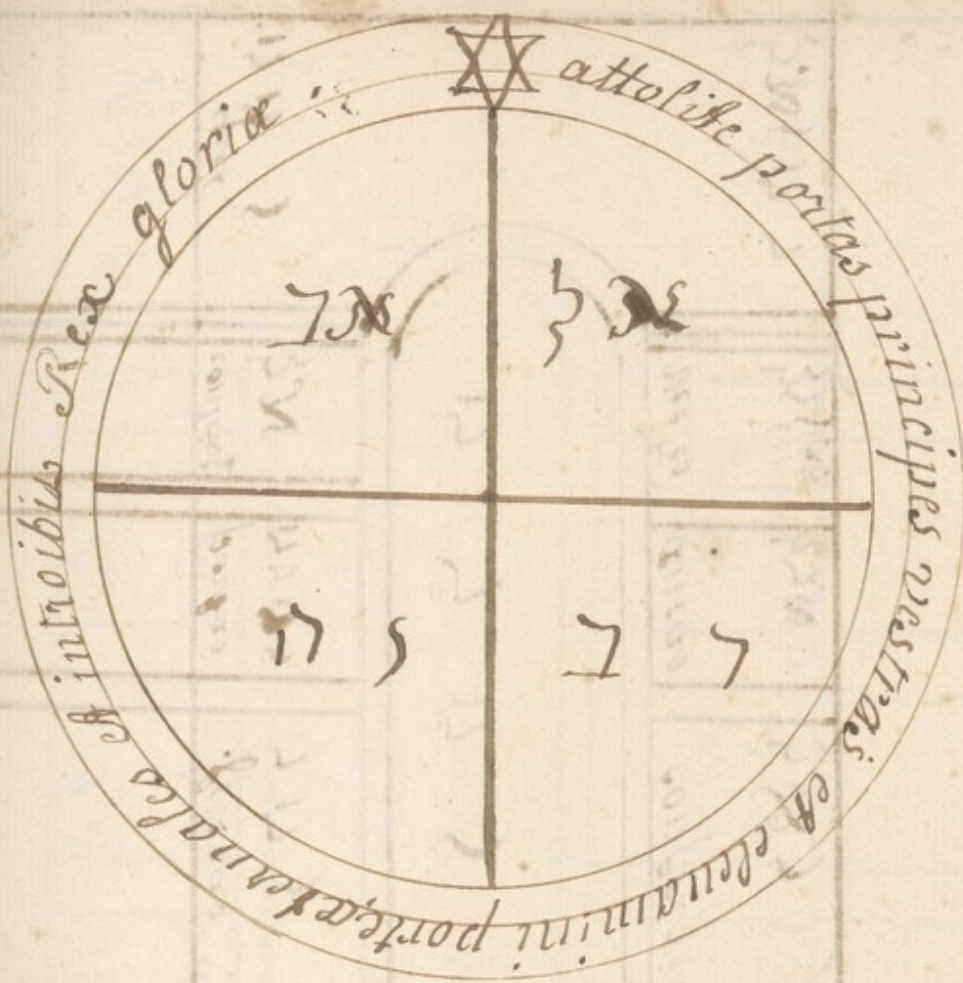 attolite portas principes vestras et eleuamini portæ æternales et introibit Rex gloriæ
אל אב
ר ב ו ה